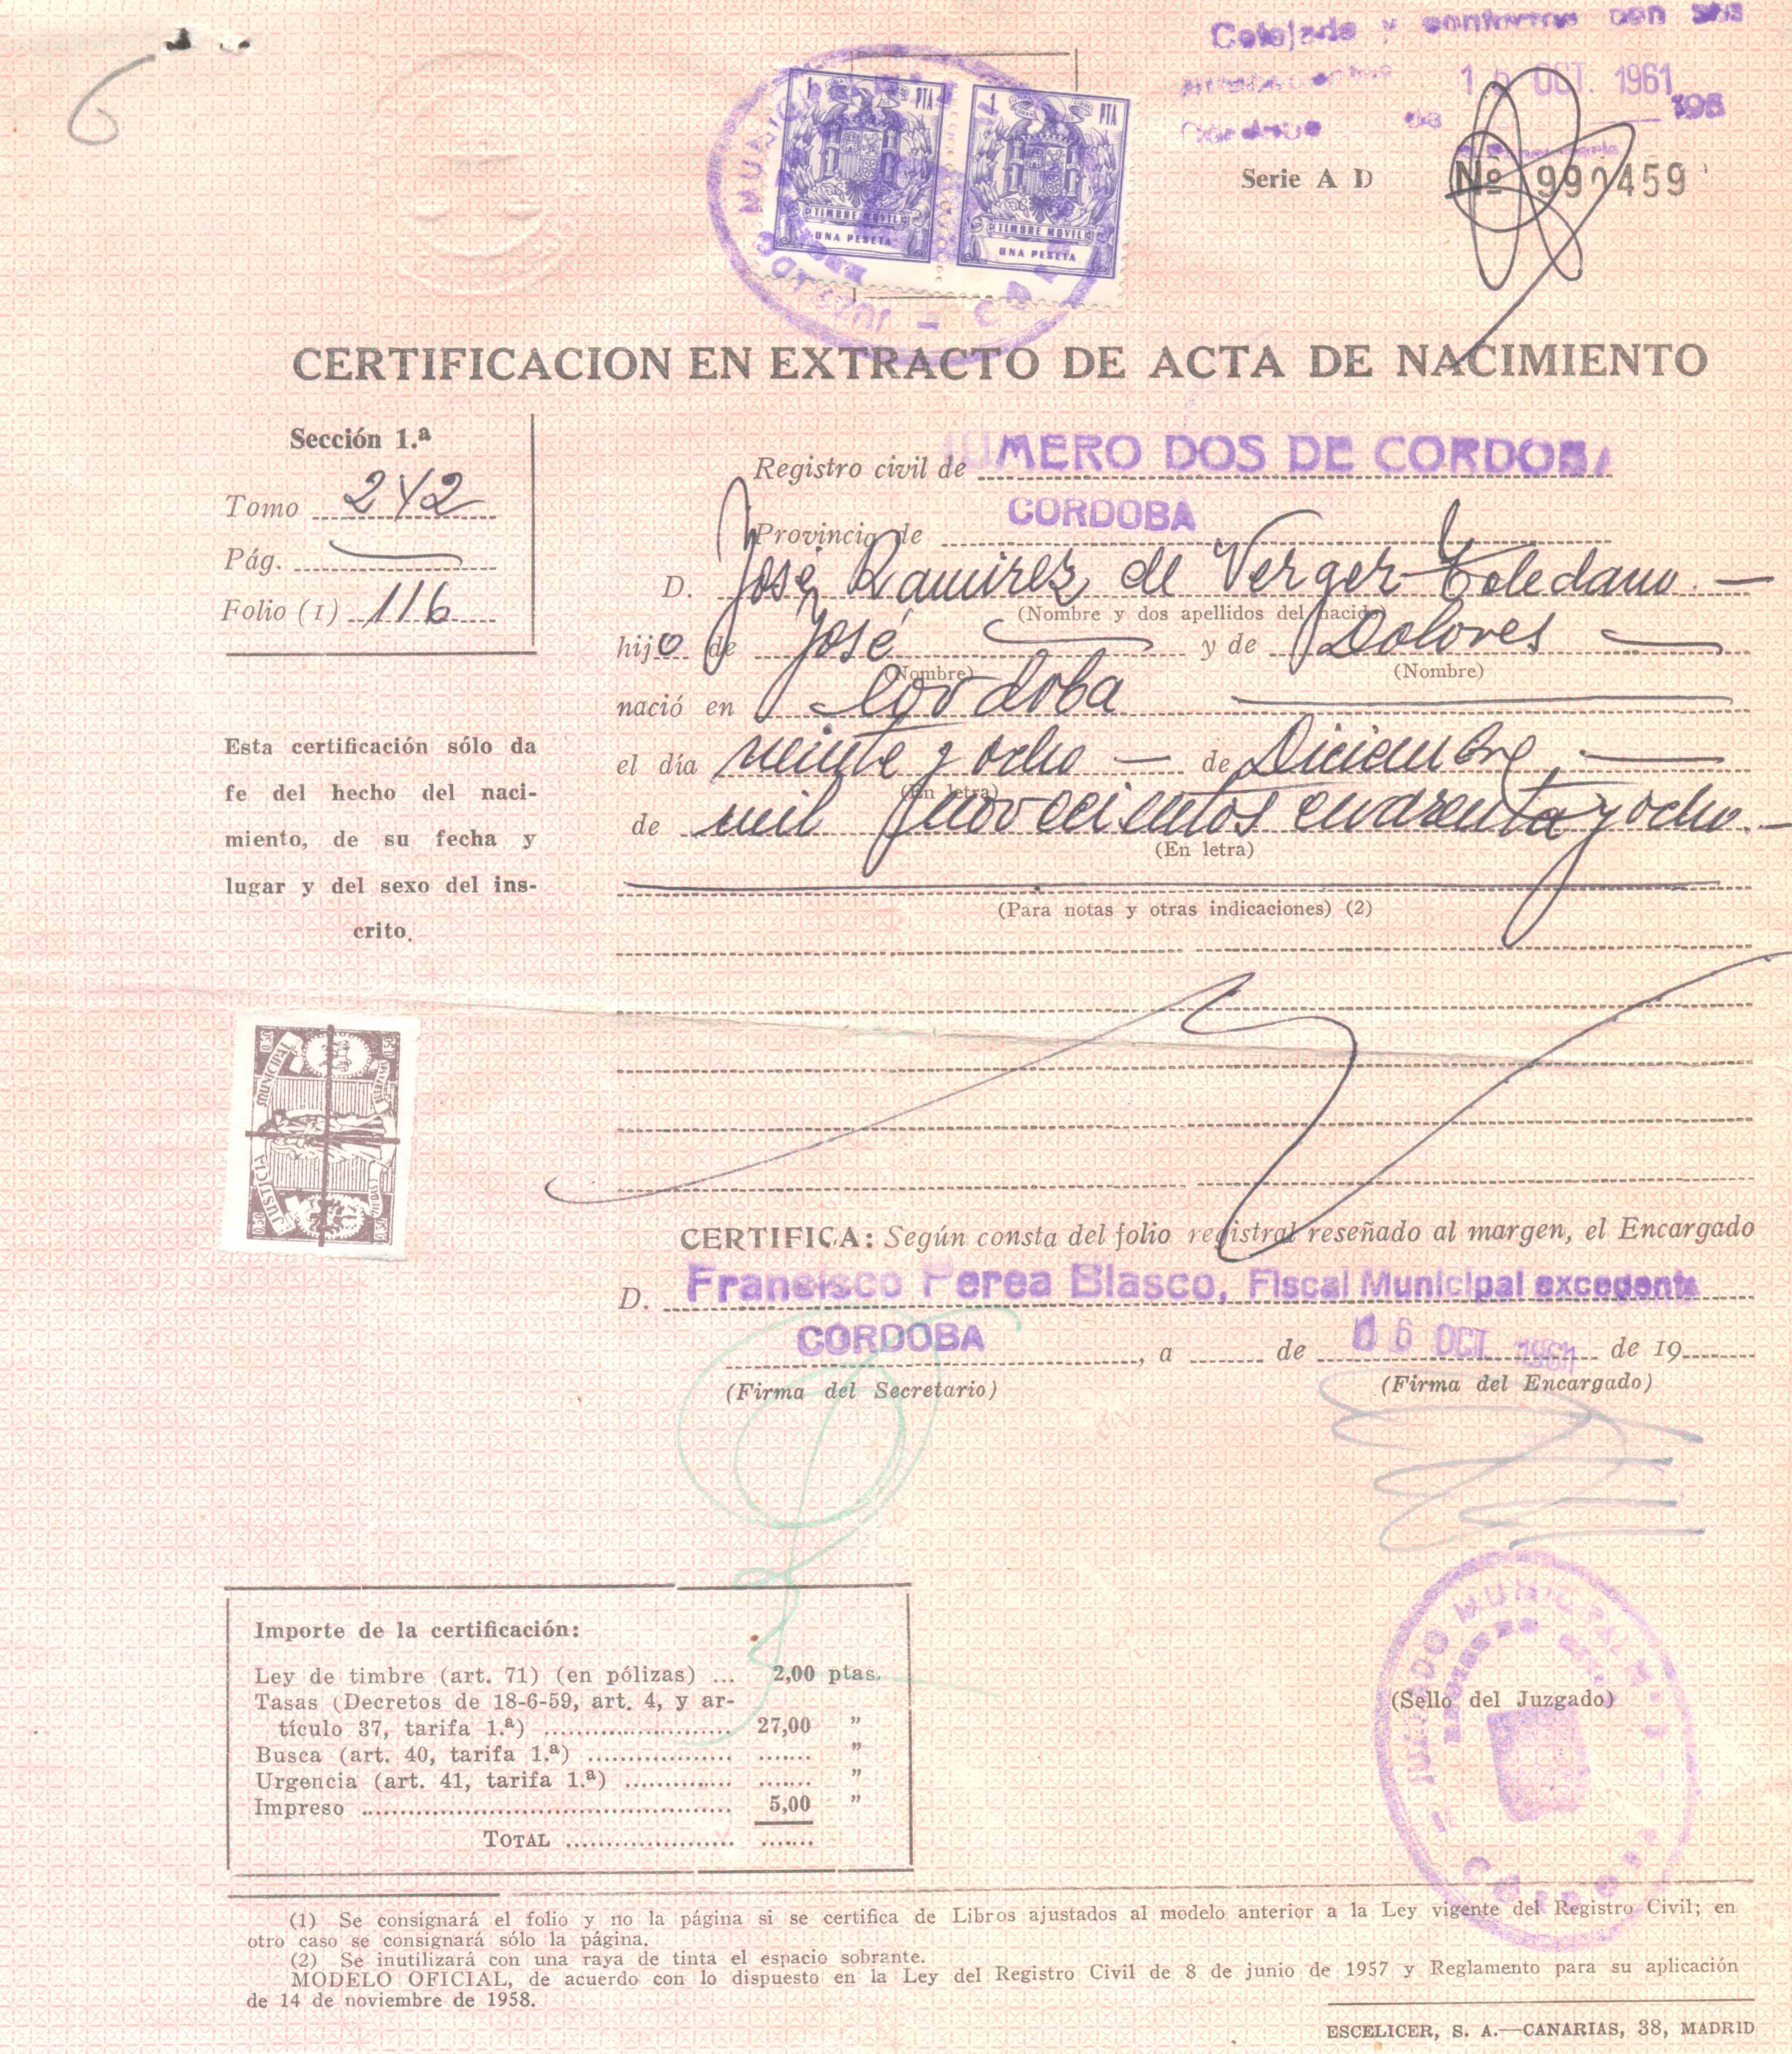 6
Cotejada y conforme con sus
15 OCT. 1961
de 196
1 PTA
TIMBRE MOVIL
UNA PESETA
1 PTA
TIMBRE MOVIL
UNA PESETA
Serie A D Nº 990459
CERTIFICACION EN EXTRACTO DE ACTA DE NACIMIENTO
Sección 1.ª
Tomo 242
Pág.
Folio (1) 116
Registro civil de NUMERO DOS DE CORDOBA
Provincia de CORDOBA
D. José Ramirez de Verger Toledano
(Nombre y dos apellidos del nacido)
hijo de José y de Dolores
(Nombre) (Nombre)
nació en Cordoba
el día veinte y ocho de Diciembre
(En letra)
de mil novecientos cuarenta y ocho.
(En letra)
(Para notas y otras indicaciones) (2)
Esta certificación sólo da
fe del hecho del naci-
miento, de su fecha y
lugar y del sexo del ins-
crito.
JUSTICIA MUNICIPAL
CERTIFICA: Según consta del folio registral reseñado al margen, el Encargado
D. Francisco Perea Blasco, Fiscal Municipal excedente
CORDOBA, a de 16 OCT. 1961 de 19
(Firma del Secretario) (Firma del Encargado)
Importe de la certificación:
Ley de timbre (art. 71) (en pólizas) ... 2,00 ptas.
Tasas (Decretos de 18-6-59, art. 4, y ar-
tículo 37, tarifa 1.ª) ........ 27,00 "
Busca (art. 40, tarifa 1.ª) ........ ....... "
Urgencia (art. 41, tarifa 1.ª) ........ ....... "
Impreso ........ 5,00 "
TOTAL ........ .......
JUZGADO MUNICIPAL
(Sello del Juzgado)
(1) Se consignará el folio y no la página si se certifica de Libros ajustados al modelo anterior a la Ley vigente del Registro Civil; en
otro caso se consignará sólo la página.
(2) Se inutilizará con una raya de tinta el espacio sobrante.
MODELO OFICIAL, de acuerdo con lo dispuesto en la Ley del Registro Civil de 8 de junio de 1957 y Reglamento para su aplicación
de 14 de noviembre de 1958.
ESCELICER, S. A.—CANARIAS, 38, MADRID